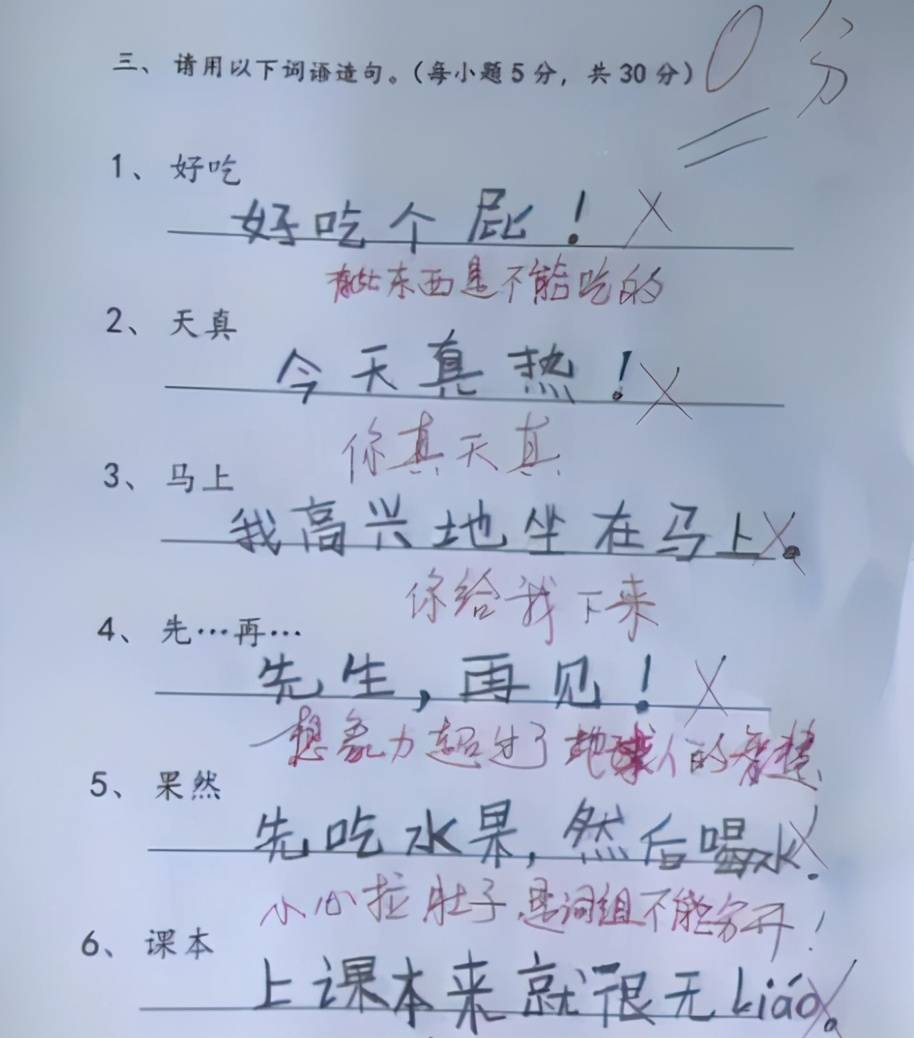 三、请用以下词语造句。(每小题5分，共30分) 0分
1、好吃
好吃个屁！
有些东西是不能吃的
2、天真
今天真热！
你真天真
3、马上
我高兴地坐在马上。
你给我下来
4、先…再…
先生，再见！
想象力超过了地球人的智慧
5、果然
先吃水果，然后喝水.
小心拉肚子，是词组不能分开！
6、课本
上课本来就很无Liáo。